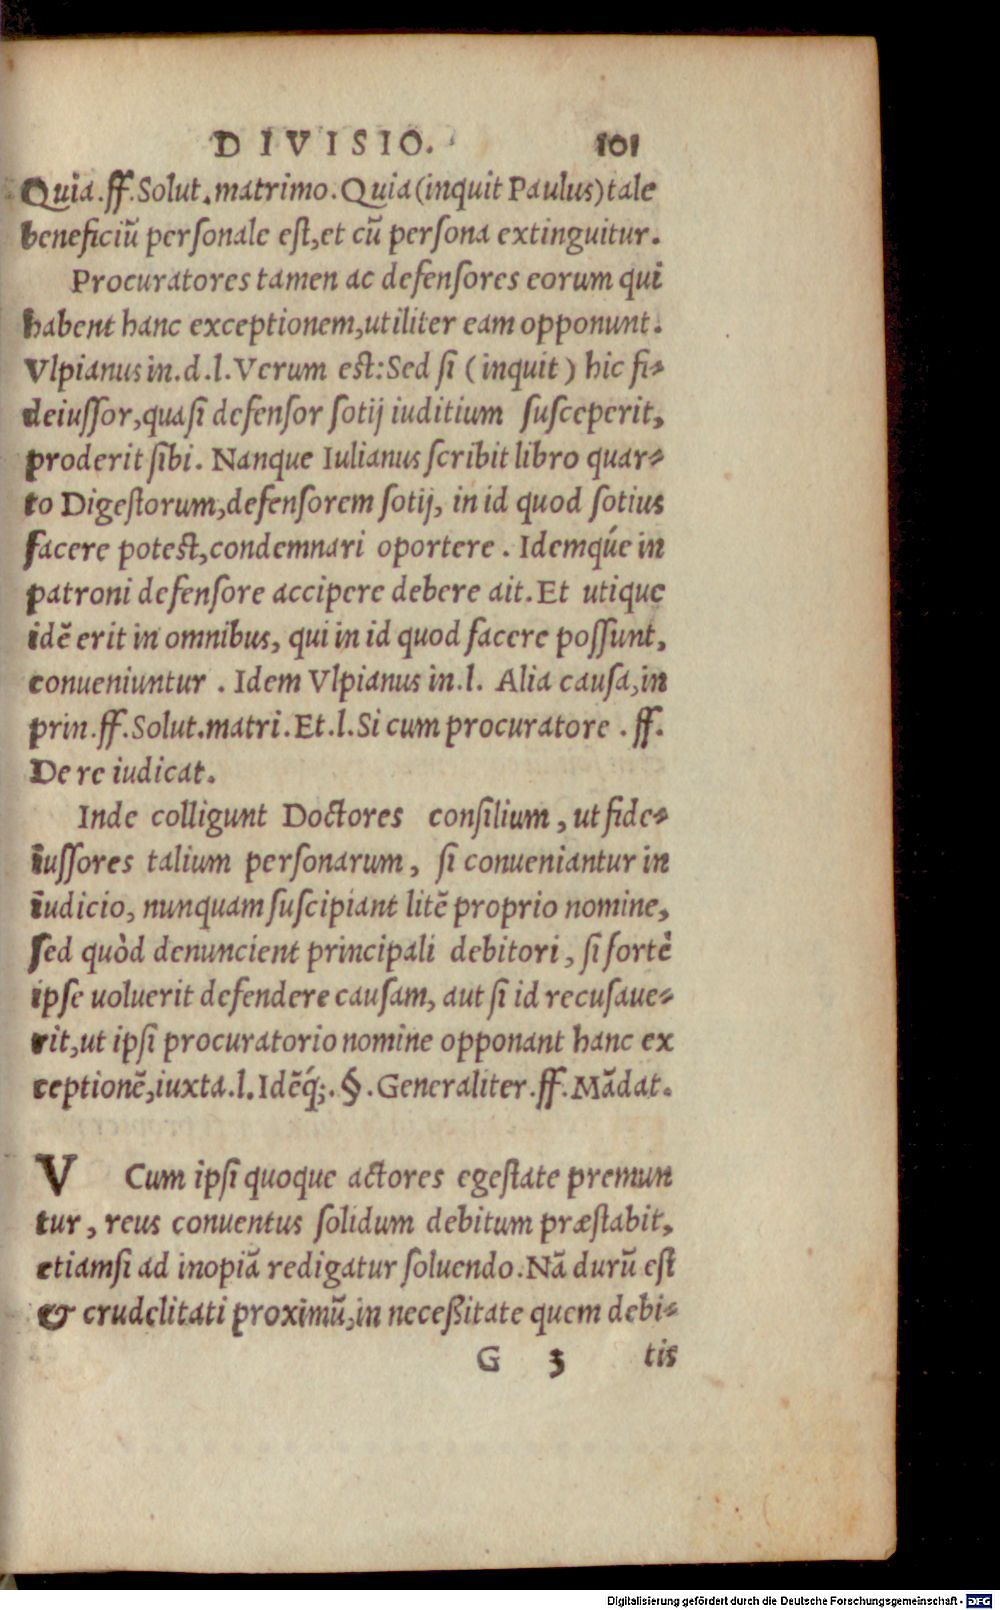 DIVISIO. 101
Quia.ff.Solut.matrimo.Quia(inquit Paulus)tale
beneficiū personale est,et cū persona extinguitur.
Procuratores tamen ac defensores eorum qui
habent hanc exceptionem,utiliter eam opponunt.
Vlpianus in.d.l.Verum est:Sed si (inquit) hic fi-
deiussor,quasi defensor sotij iuditium susceperit,
proderit sibi. Nanque Iulianus scribit libro quar-
to Digestorum,defensorem sotij, in id quod sotius
facere potest,condemnari oportere. Idemq́ue in
patroni defensore accipere debere ait.Et utique
idē erit in omnibus, qui in id quod facere possunt,
conueniuntur. Idem Vlpianus in.l. Alia causa,in
prin.ff.Solut.matri.Et.l.Si cum procuratore.ff.
De re iudicat.
Inde colligunt Doctores consilium, ut fide-
iussores talium personarum, si conueniantur in
iudicio, nunquam suscipiant litē proprio nomine,
sed quòd denuncient principali debitori, si fortè
ipse uoluerit defendere causam, aut si id recusaue-
rit,ut ipsi procuratorio nomine opponant hanc ex
ceptionē,iuxta.l.Idēq́;.§.Generaliter.ff.Mādat.
V Cum ipsi quoque actores egestate premun
tur, reus conuentus solidum debitum præstabit,
etiamsi ad inopiā redigatur soluendo.Nā durū est
& crudelitati proximū,in neceßitate quem debi-
G 3 tis
Digitalisierung gefördert durch die Deutsche Forschungsgemeinschaft - DFG